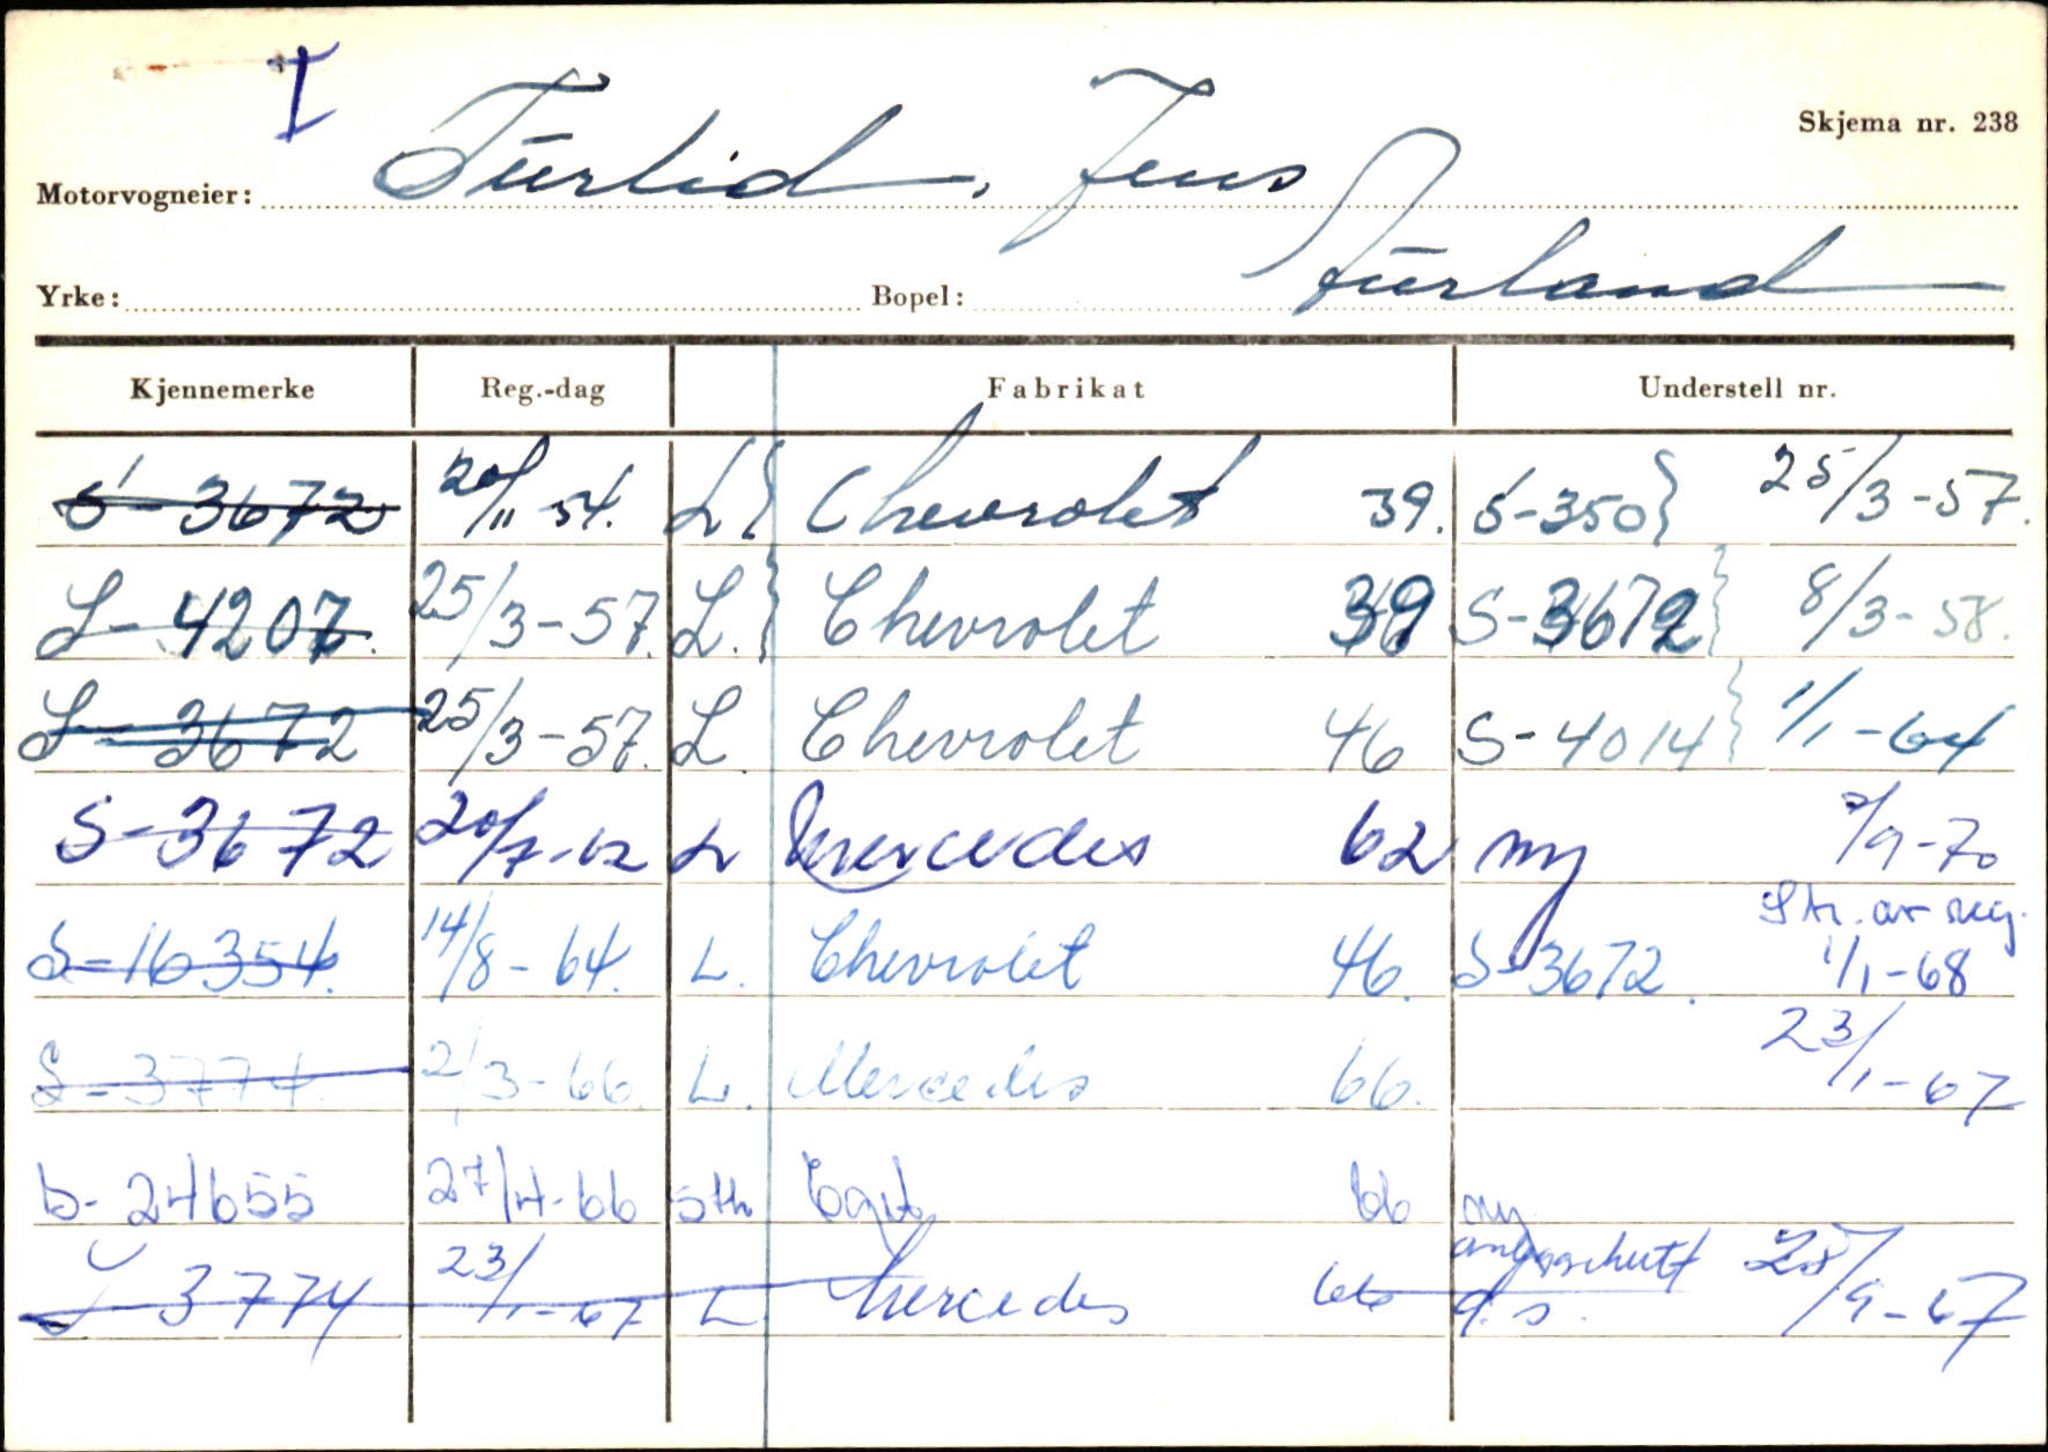 I
Skjema nr. 238
Motorvogneier: Turlid, Jens
Yrke: Bopel: Aurland
Kjennemerke Reg.-dag Fabrikat Understell nr.
S-3672 20/11-54. L Chevrolet 39. S-350 } 25/3-57.
S-4207. 25/3-57. L. Chevrolet 39 S-3672 } 8/3-58.
S-3672 25/3-57. L Chevrolet 46 S-4014 } 1/1-64
S-3672 20/7-62 L Mercedes 62 ny 2/9-70
S-16354. 14/8-64. L. Chevrolet 46. S-3672. Str. av reg. 1/1-68
S-3774. 2/3-66. L. Mercedes 66. 23/1-67
S-24655 27/4-66 Sth 66 ny
S 3774 23/1-67 L Mercedes 66 d.s. 28/9-67